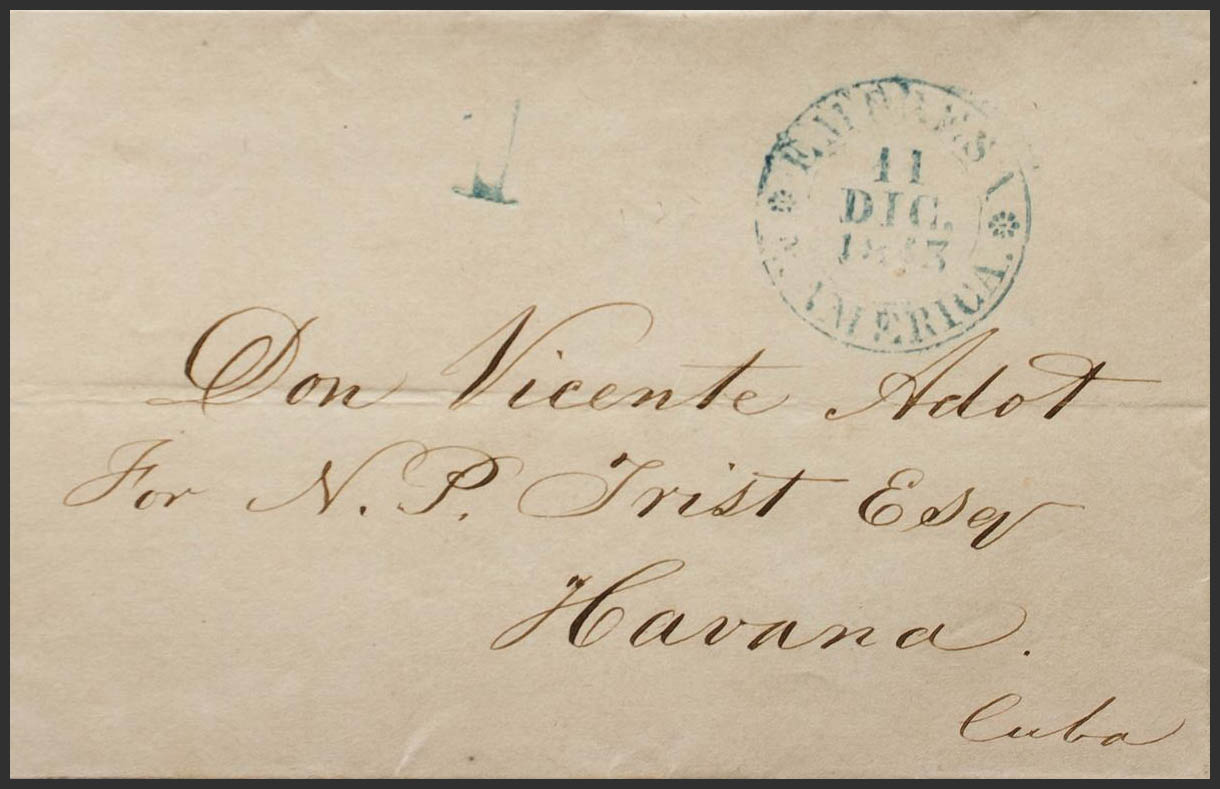 1
11
DIC.
AMERICA.
Don Vicente Adot
For N. P. Trist Esqr
Havana.
Cuba